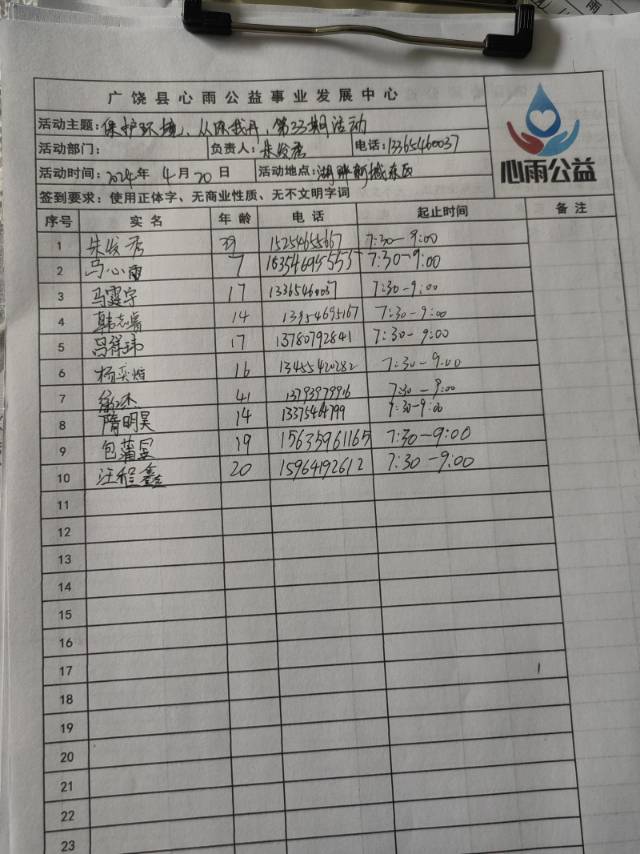 广饶县心雨公益事业发展中心
活动主题: 保护环境、从你我开、第33期活动
活动部门: 负责人: 朱 电话: 13365460037
活动时间: 2024年 4月 20日 活动地点: 湖畔新城东区
心雨公益
签到要求: 使用正体字、无商业性质、无不文明字词
序号 实名 年龄 电话 起止时间 备注
1 朱 15254655667 7:30-9:00
2 马心雨 7 7:30-9:00
3 马霆宇 17 13365460037 7:30-9:00
4 韩志 14 13954695167 7:30-9:00
5 吕祥玮 17 13780792841 7:30-9:00
6 杨奕 16 13455420282 7:30-9:00
7 41 13793979916 7:30-9:00
8 隋明昊 14 7:30-9:00
9 包蒲昱 19 15635961165 7:30-9:00
10 汪程鑫 20 15964192612 7:30-9:00
11
12
13
14
15
16
17
18
19
20
21
22
23